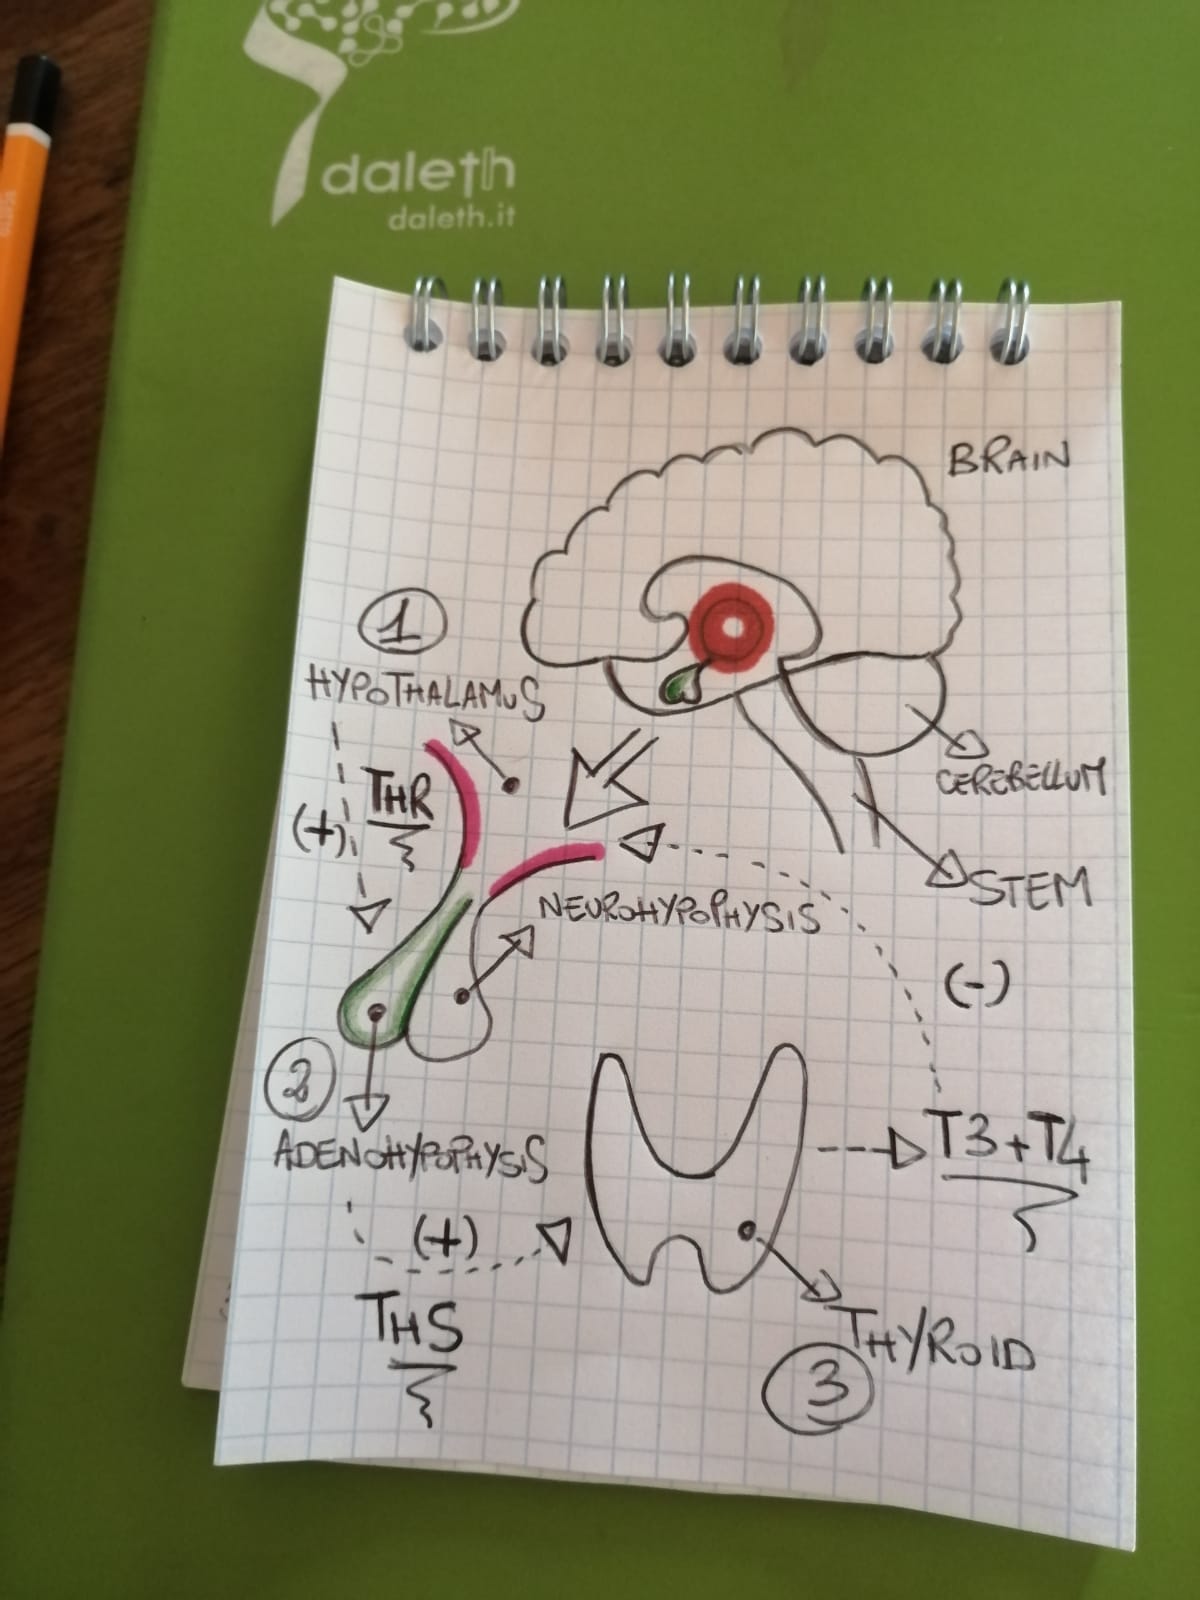 daleth
daleth.it
BRAIN
1
HYPOTHALAMUS
THR
(+)
CEREBELLUM
STEM
NEUROHYPOPHYSIS
(-)
2
ADENOHYPOPHYSIS
T3+T4
(+)
THS
THYROID
3